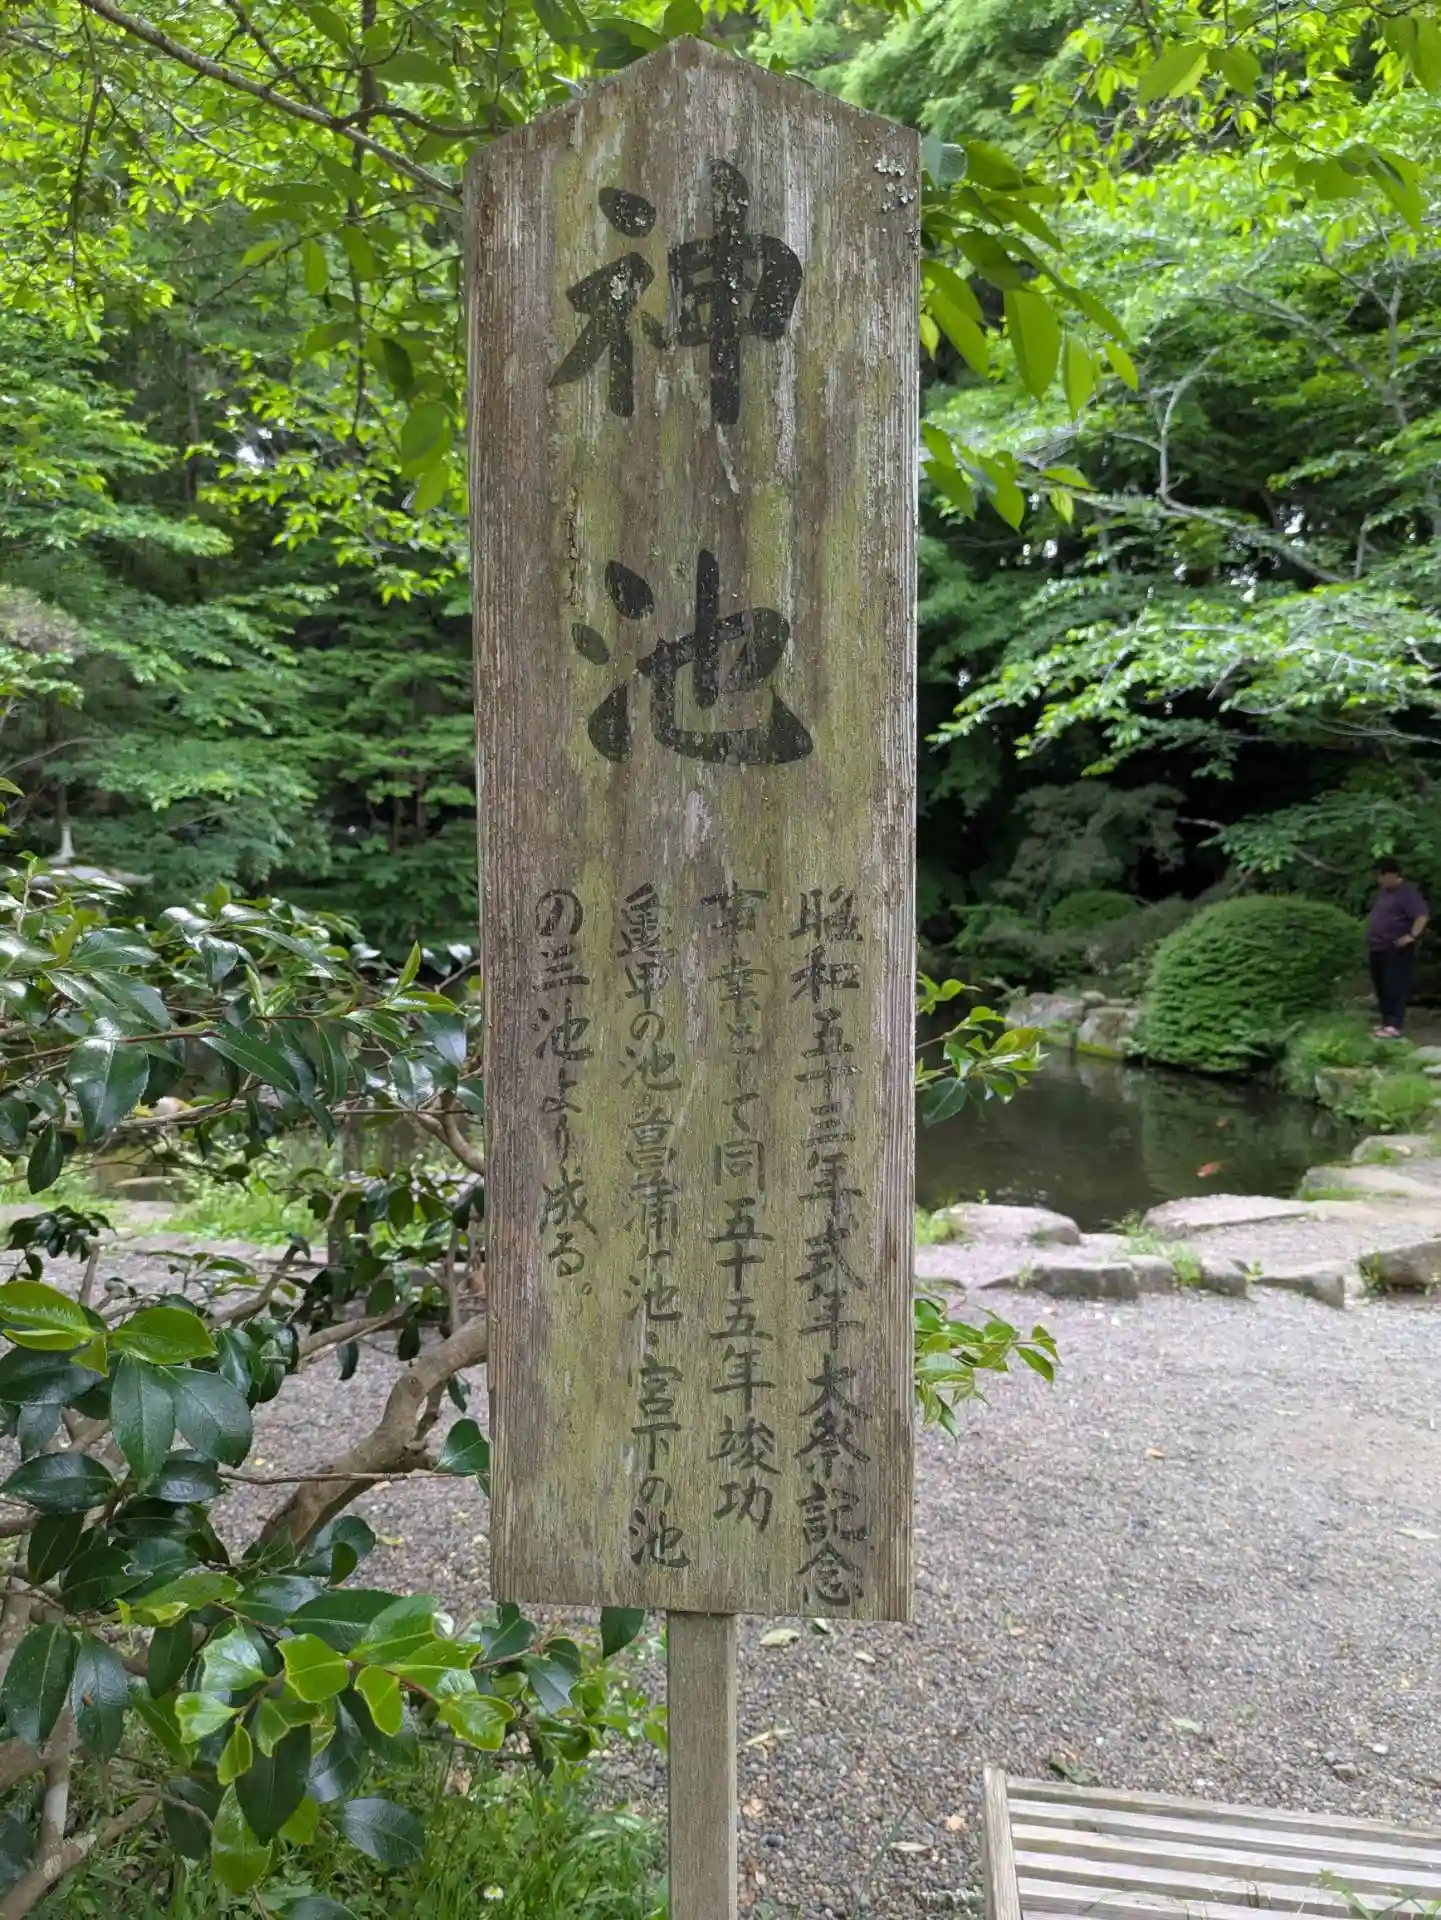 神池
昭和五十三年式年大祭記念
事業として同五十五年竣功
亀甲の池・菖蒲ヶ池・宮下の池
の三池より成る。